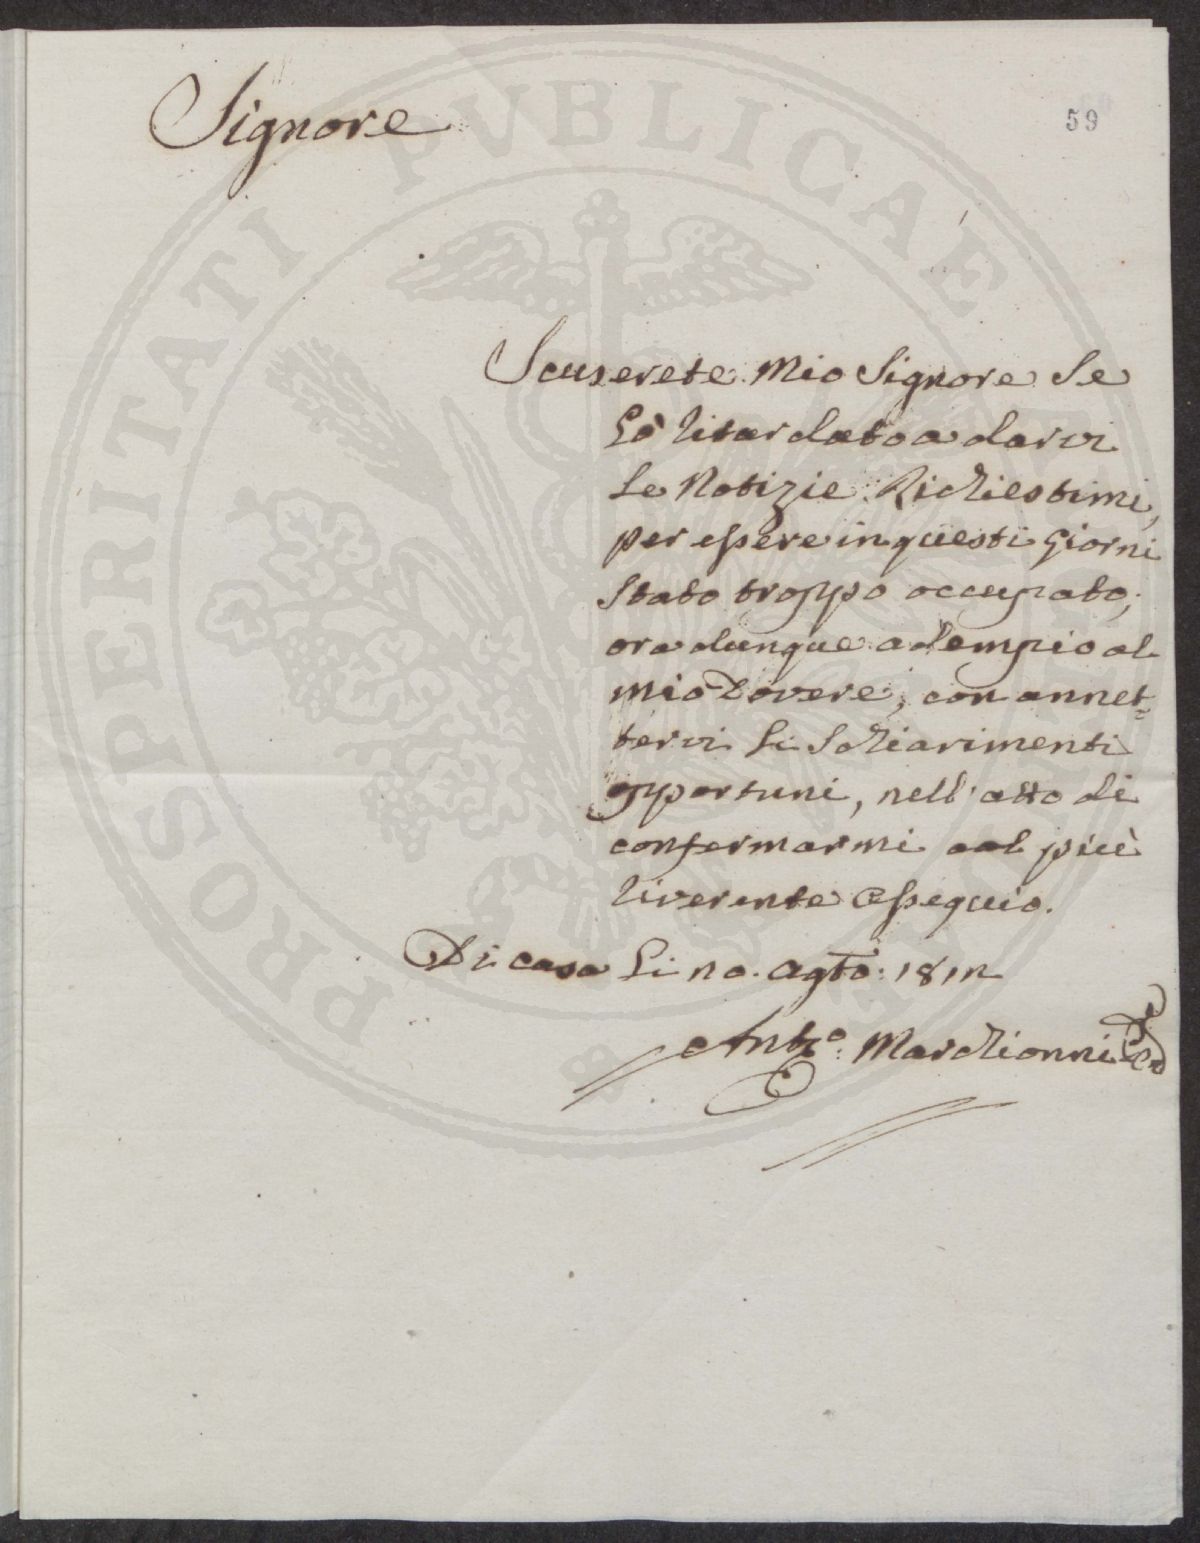 59
Signore
Scuserete Mio Signore Se
hò ritardato a darvi
Le Notizie Richiestimi,
per essere in questi Giorni
Stato troppo occupato,
ora dunque adempio al
mio Dovere, con annet=
tervi Li Schiarimenti
opportuni, nell' atto di
confermarmi col più
riverente Ossequio.
Di casa Li 20. Agto: 1812
Anto: Marchionni
PROSPERITATI PVBLICAE